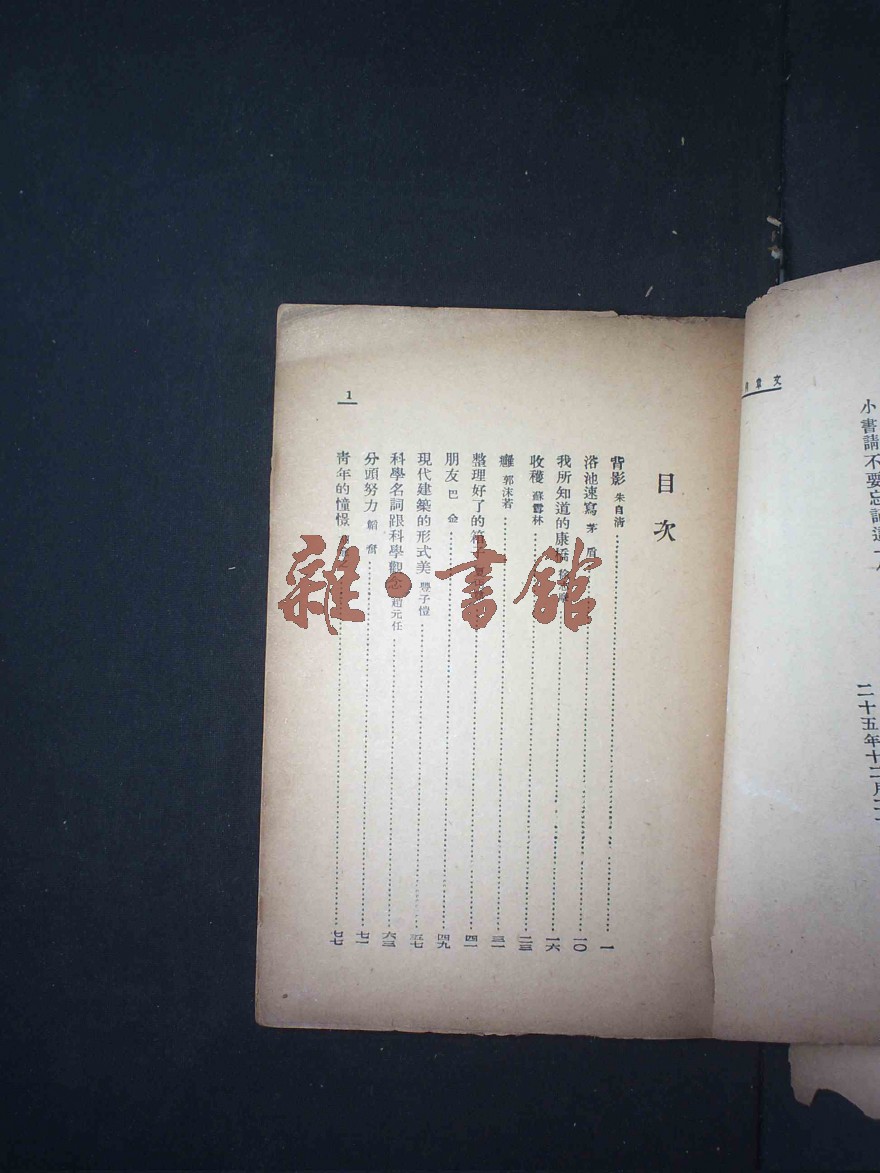 文章
小書請不要忘記這一
二十五年十二月二
目次
背影 朱自清 一
浴池速寫 茅盾 一〇
我所知道的康橋 一六
收穫 蘇雪林 二三
郭沫若 三一
整理好了的箱子 四一
朋友 巴金 四九
現代建築的形式美 豐子愷 五七
科學名詞跟科學觀念 趙元任 六三
分頭努力 韜奮 七一
靑年的憧憬 七七
1
雜·書館